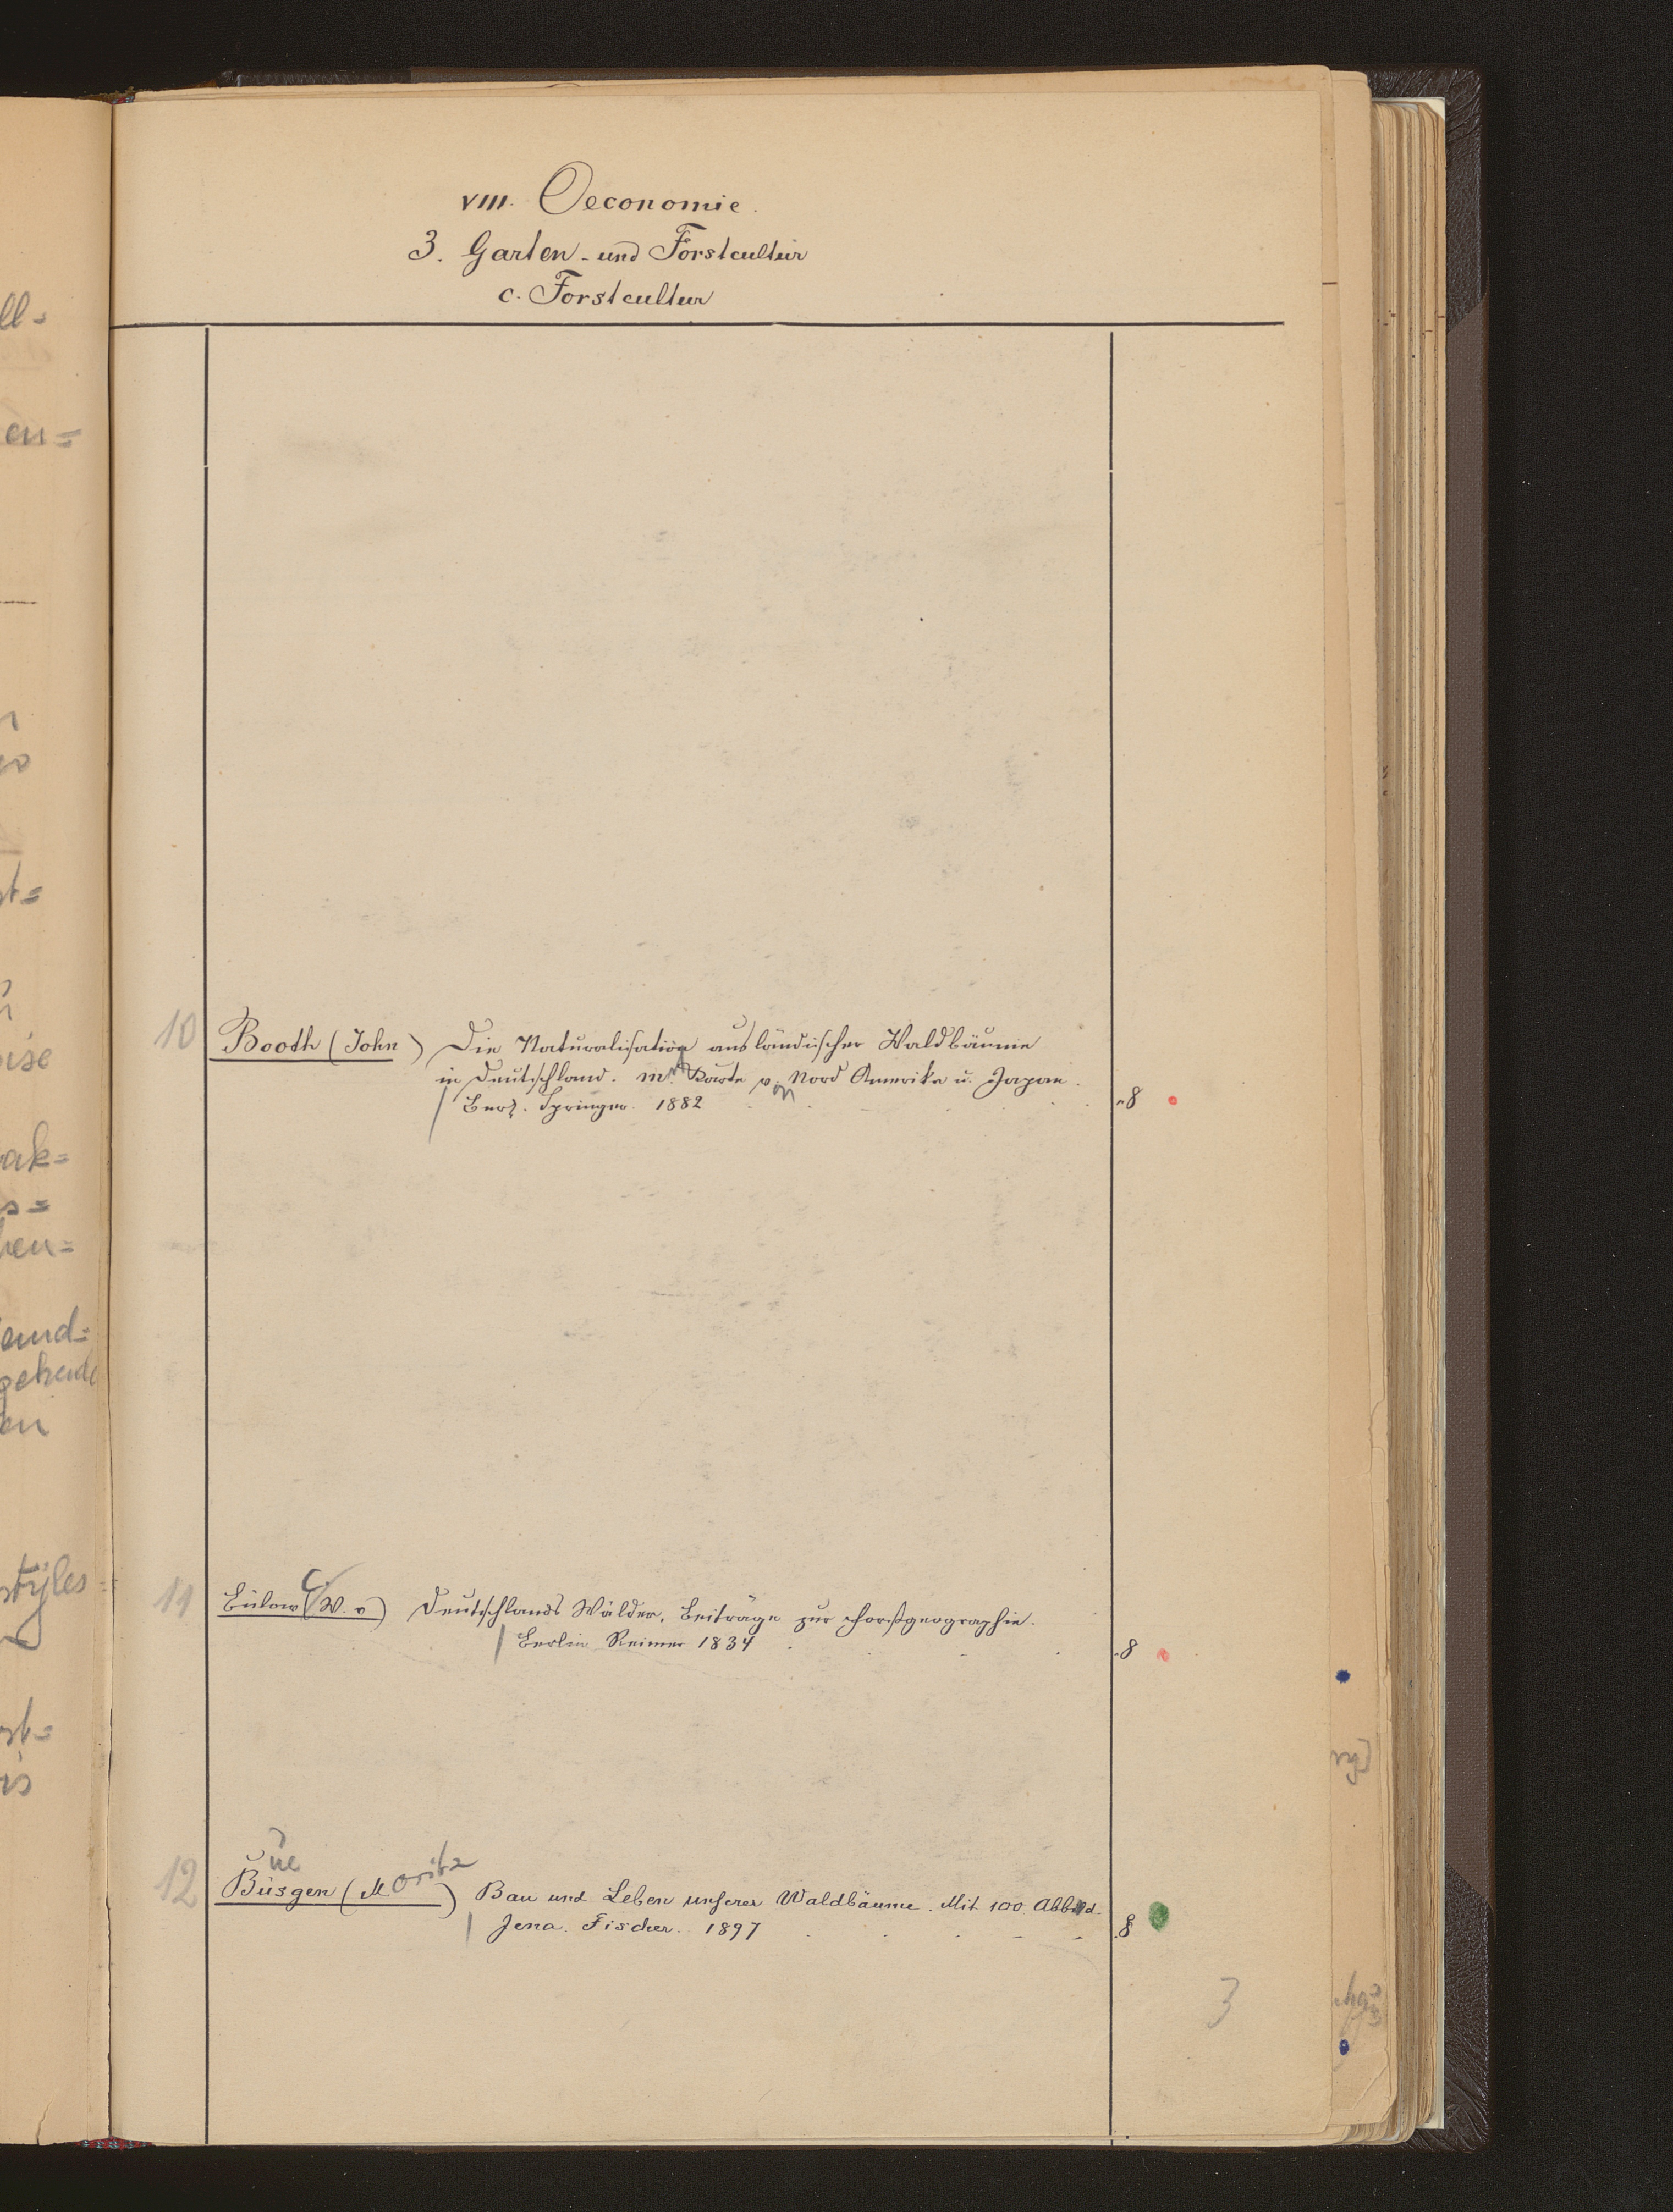 VIII. Oeconomie.
3. Garten- und Forstcultur
c. Forstcultur
10 Booth (John) Die Naturalisation ausländischer Waldbäume
in Deutschland. M. Karte von Nord Amerika u. Japan.
Berl. Springer. 1882 8
11 Bülow (C. W. v) Deutschlands Wälder, Beiträge zur Forstgeographie.
Berlin Reimer 1834 8
12 Büsgen (Moritz) Bau und Leben unserer Waldbäume. Mit 100 Abbild.
Jena. Fischer. 1897 8
3
ll=
en=
st=
ise
ak=
s=
hen=
emd=
gehende
en
styles=
st=
is